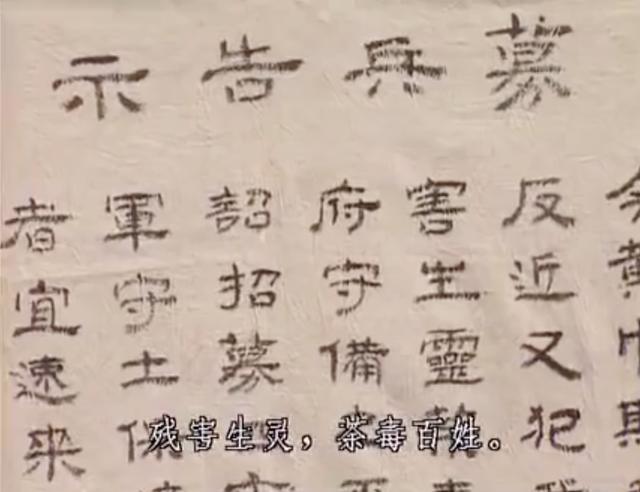 募兵告示
今黄巾
反近又犯
害生靈
府守備
詔招募
軍守土保
者宜速来
残害生灵，荼毒百姓。